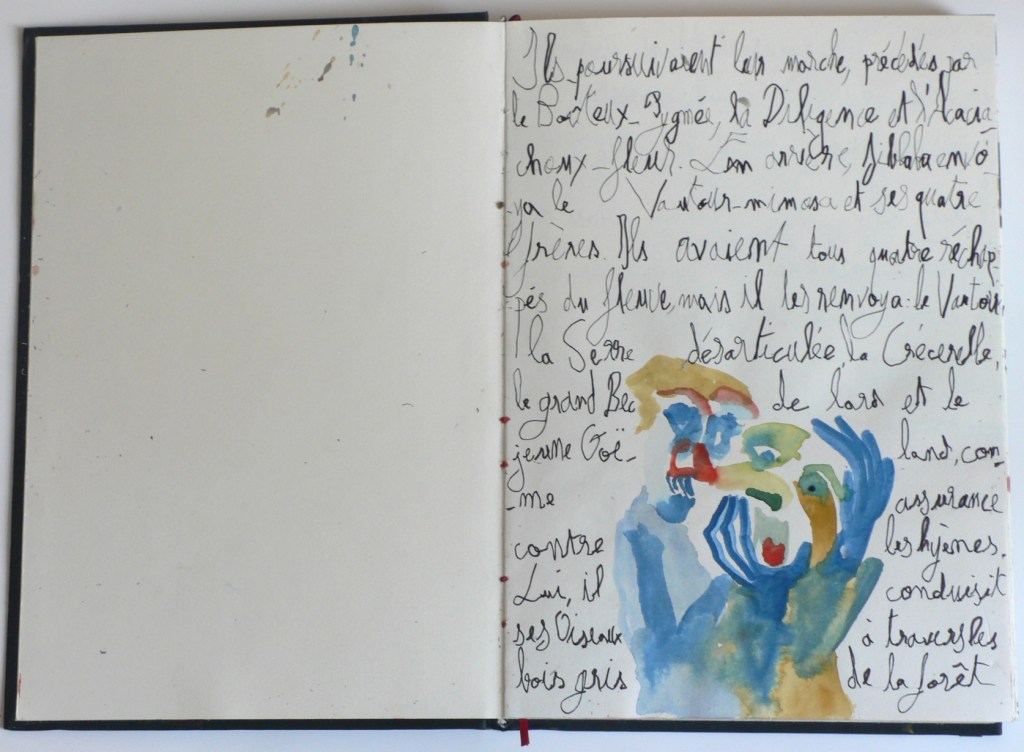 Ils poursuivaient leur marche, précédés par
le Boîteux-Pygmée, la Diligence et l'Acacia-
choux-fleur. L'en arrière, envo-
ya le Vautour-mimosa et ses quatre
frères. Ils avaient tous quatre réchap-
pés du fleuve, mais il les renvoya: le Vautour,
la Serre désarticulée, la Crécerelle,
le grand Bec de lars et le
jeune Goë-land, com-
-me assurance
contre les hyènes.
Lui, il conduisit
ses Oiseaux à travers les
bois gris de la forêt